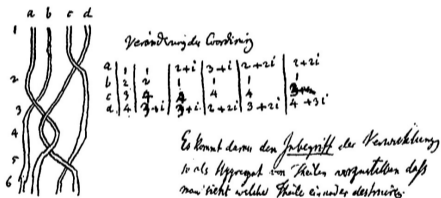 a b c d
1
2
3
4
5
6
Veränderung der Coordinirung
a | 1 | 1 | 2+i | 3+i | 2+2i | 2+2i
b | 2 | 2 | 1 | 1 | 1 | 1
c | 3 | 4 | 4 | 4 | 4
d | 4 | 3+i | 3+i | 2+2i | 3+2i | 4+3i
Es kommt darauf an den Inbegriff der Verwickelung
so als Aggregat von Theilen vorzustellen daß
man sieht welche Theile einander destruiren